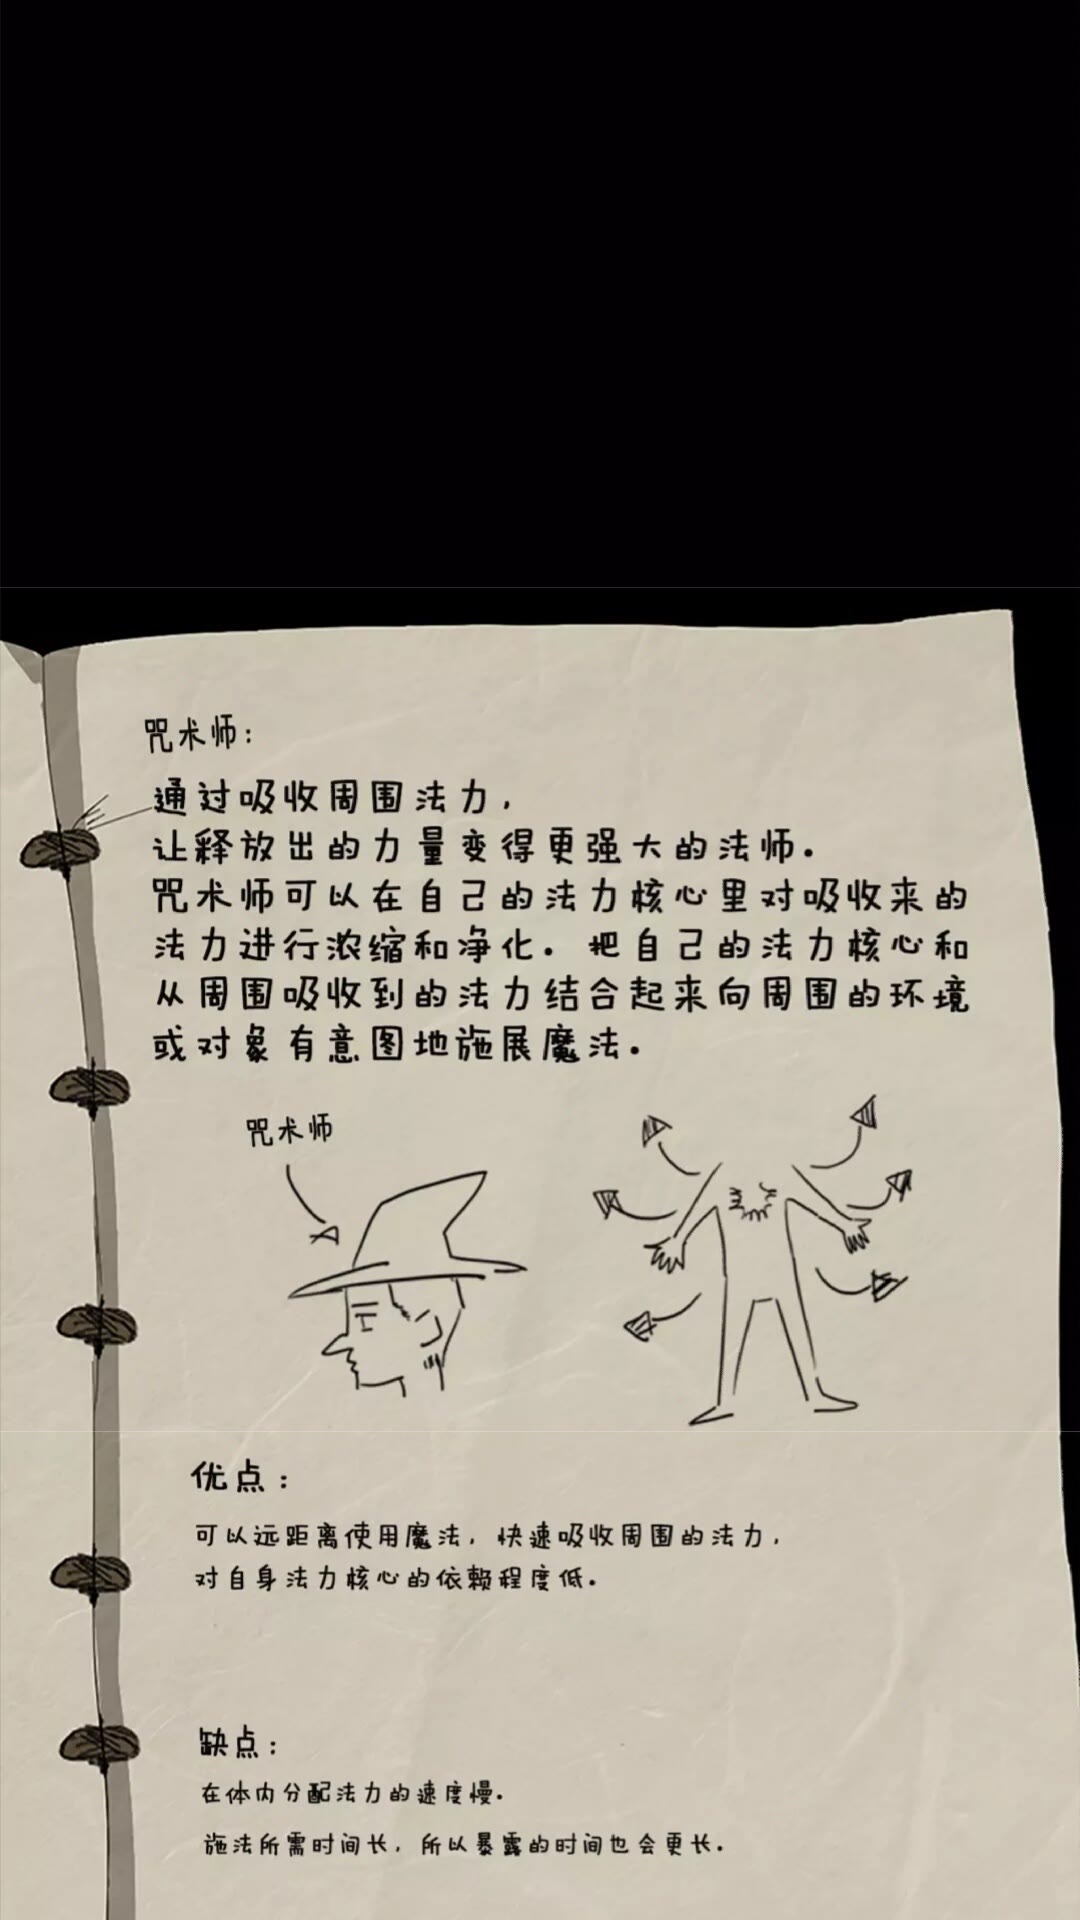 咒术师：
通过吸收周围法力，
让释放出的力量变得更强大的法师.
咒术师可以在自己的法力核心里对吸收来的
法力进行浓缩和净化. 把自己的法力核心和
从周围吸收到的法力结合起来向周围的环境
或对象有意图地施展魔法.
咒术师
优点：
可以远距离使用魔法, 快速吸收周围的法力,
对自身法力核心的依赖程度低.
缺点：
在体内分配法力的速度慢.
施法所需时间长, 所以暴露的时间也会更长.